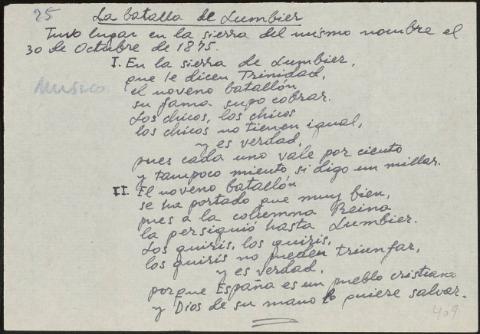 25
La batalla de Lumbier
Tuvo lugar en la sierra del mismo nombre el
30 de Octubre de 1875.
I. En la sierra de Lumbier,
que le dicen Trinidad,
Musico
el noveno batallón
su fama supo cobrar.
Los chicos, los chicos
los chicos no tienen igual,
y es verdad,
pues cada uno vale por ciento
y tampoco miento si digo un millar.
II. El noveno batallón
se ha portado que muy bien,
pues a la columna Reina
la persiguió hasta Lumbier.
Los guiris, los guiris,
los guiris no pueden triunfar,
y es verdad,
porque España es un pueblo cristiano
y Dios de su mano lo quiere salvar.
409